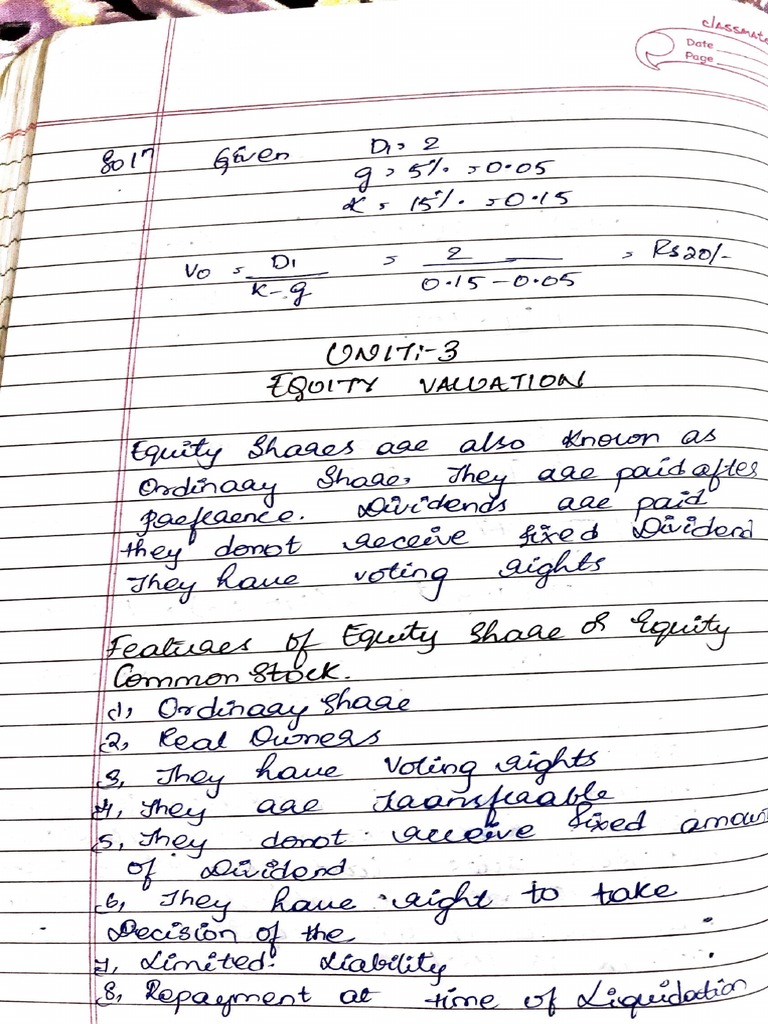 classmate
Date
Page
Soln Given D1 = 2
g = 5% = 0.05
K = 15% = 0.15
Vo = D1 / K - g = 2 / 0.15 - 0.05 = Rs 20/-
UNIT:-3
EQUITY VALUATION
Equity Shares are also Known as
Ordinary Share. They are paid after
Prefraence. Dividends are paid
they donot receive fixed Dividend
They have voting rights
Features of Equity Share or Equity
Common Stock.
1, Ordinary Share
2, Real Owners
3, They have Voting rights
4, They are Transfraable
5, They donot receive fixed amoun
of Dividend
6, They have right to take
Decision of the
7, Limited Liability
8, Repayment at time of Liquidation